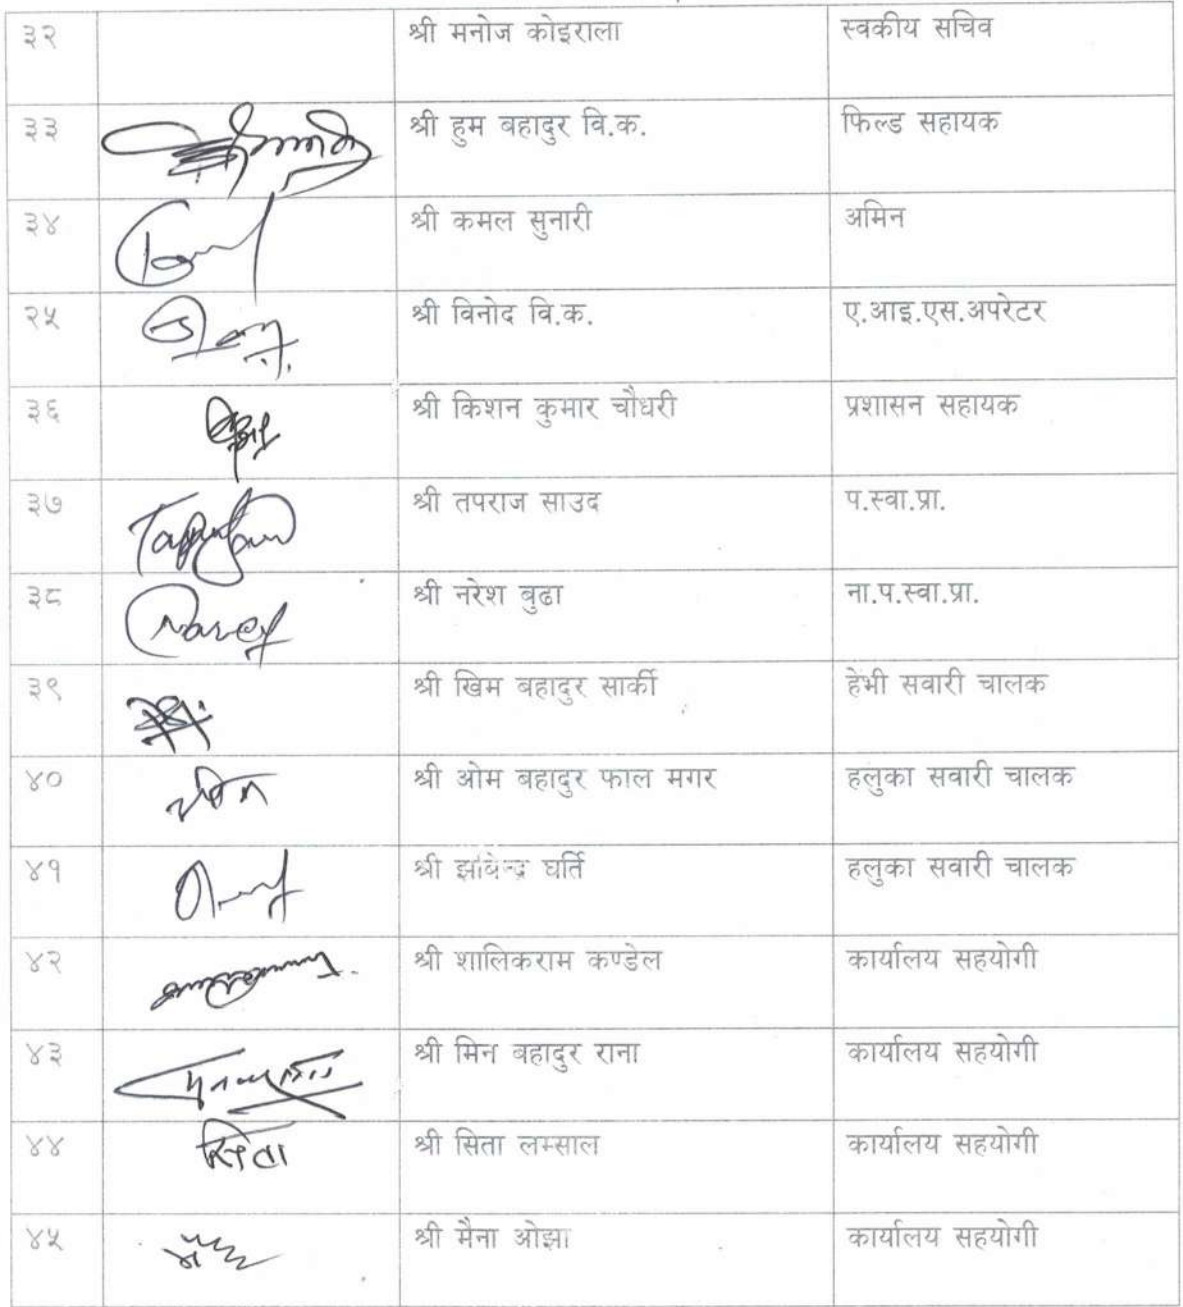 ३२ श्री मनोज कोइराला स्वकीय सचिव
३३ श्री हुम बहादुर वि.क. फिल्ड सहायक
३४ श्री कमल सुनारी अमिन
२५ श्री विनोद वि.क. ए.आइ.एस.अपरेटर
३६ श्री किशन कुमार चौधरी प्रशासन सहायक
३७ श्री तपराज साउद प.स्वा.प्रा.
३८ श्री नरेश बुढा ना.प.स्वा.प्रा.
३९ श्री खिम बहादुर सार्की हेभी सवारी चालक
४० श्री ओम बहादुर फाल मगर हलुका सवारी चालक
४१ श्री घर्ति हलुका सवारी चालक
४२ श्री शालिकराम कण्डेल कार्यालय सहयोगी
४३ श्री मिन बहादुर राना कार्यालय सहयोगी
४४ सिता श्री सिता लम्साल कार्यालय सहयोगी
४५ श्री मैना ओझा कार्यालय सहयोगी